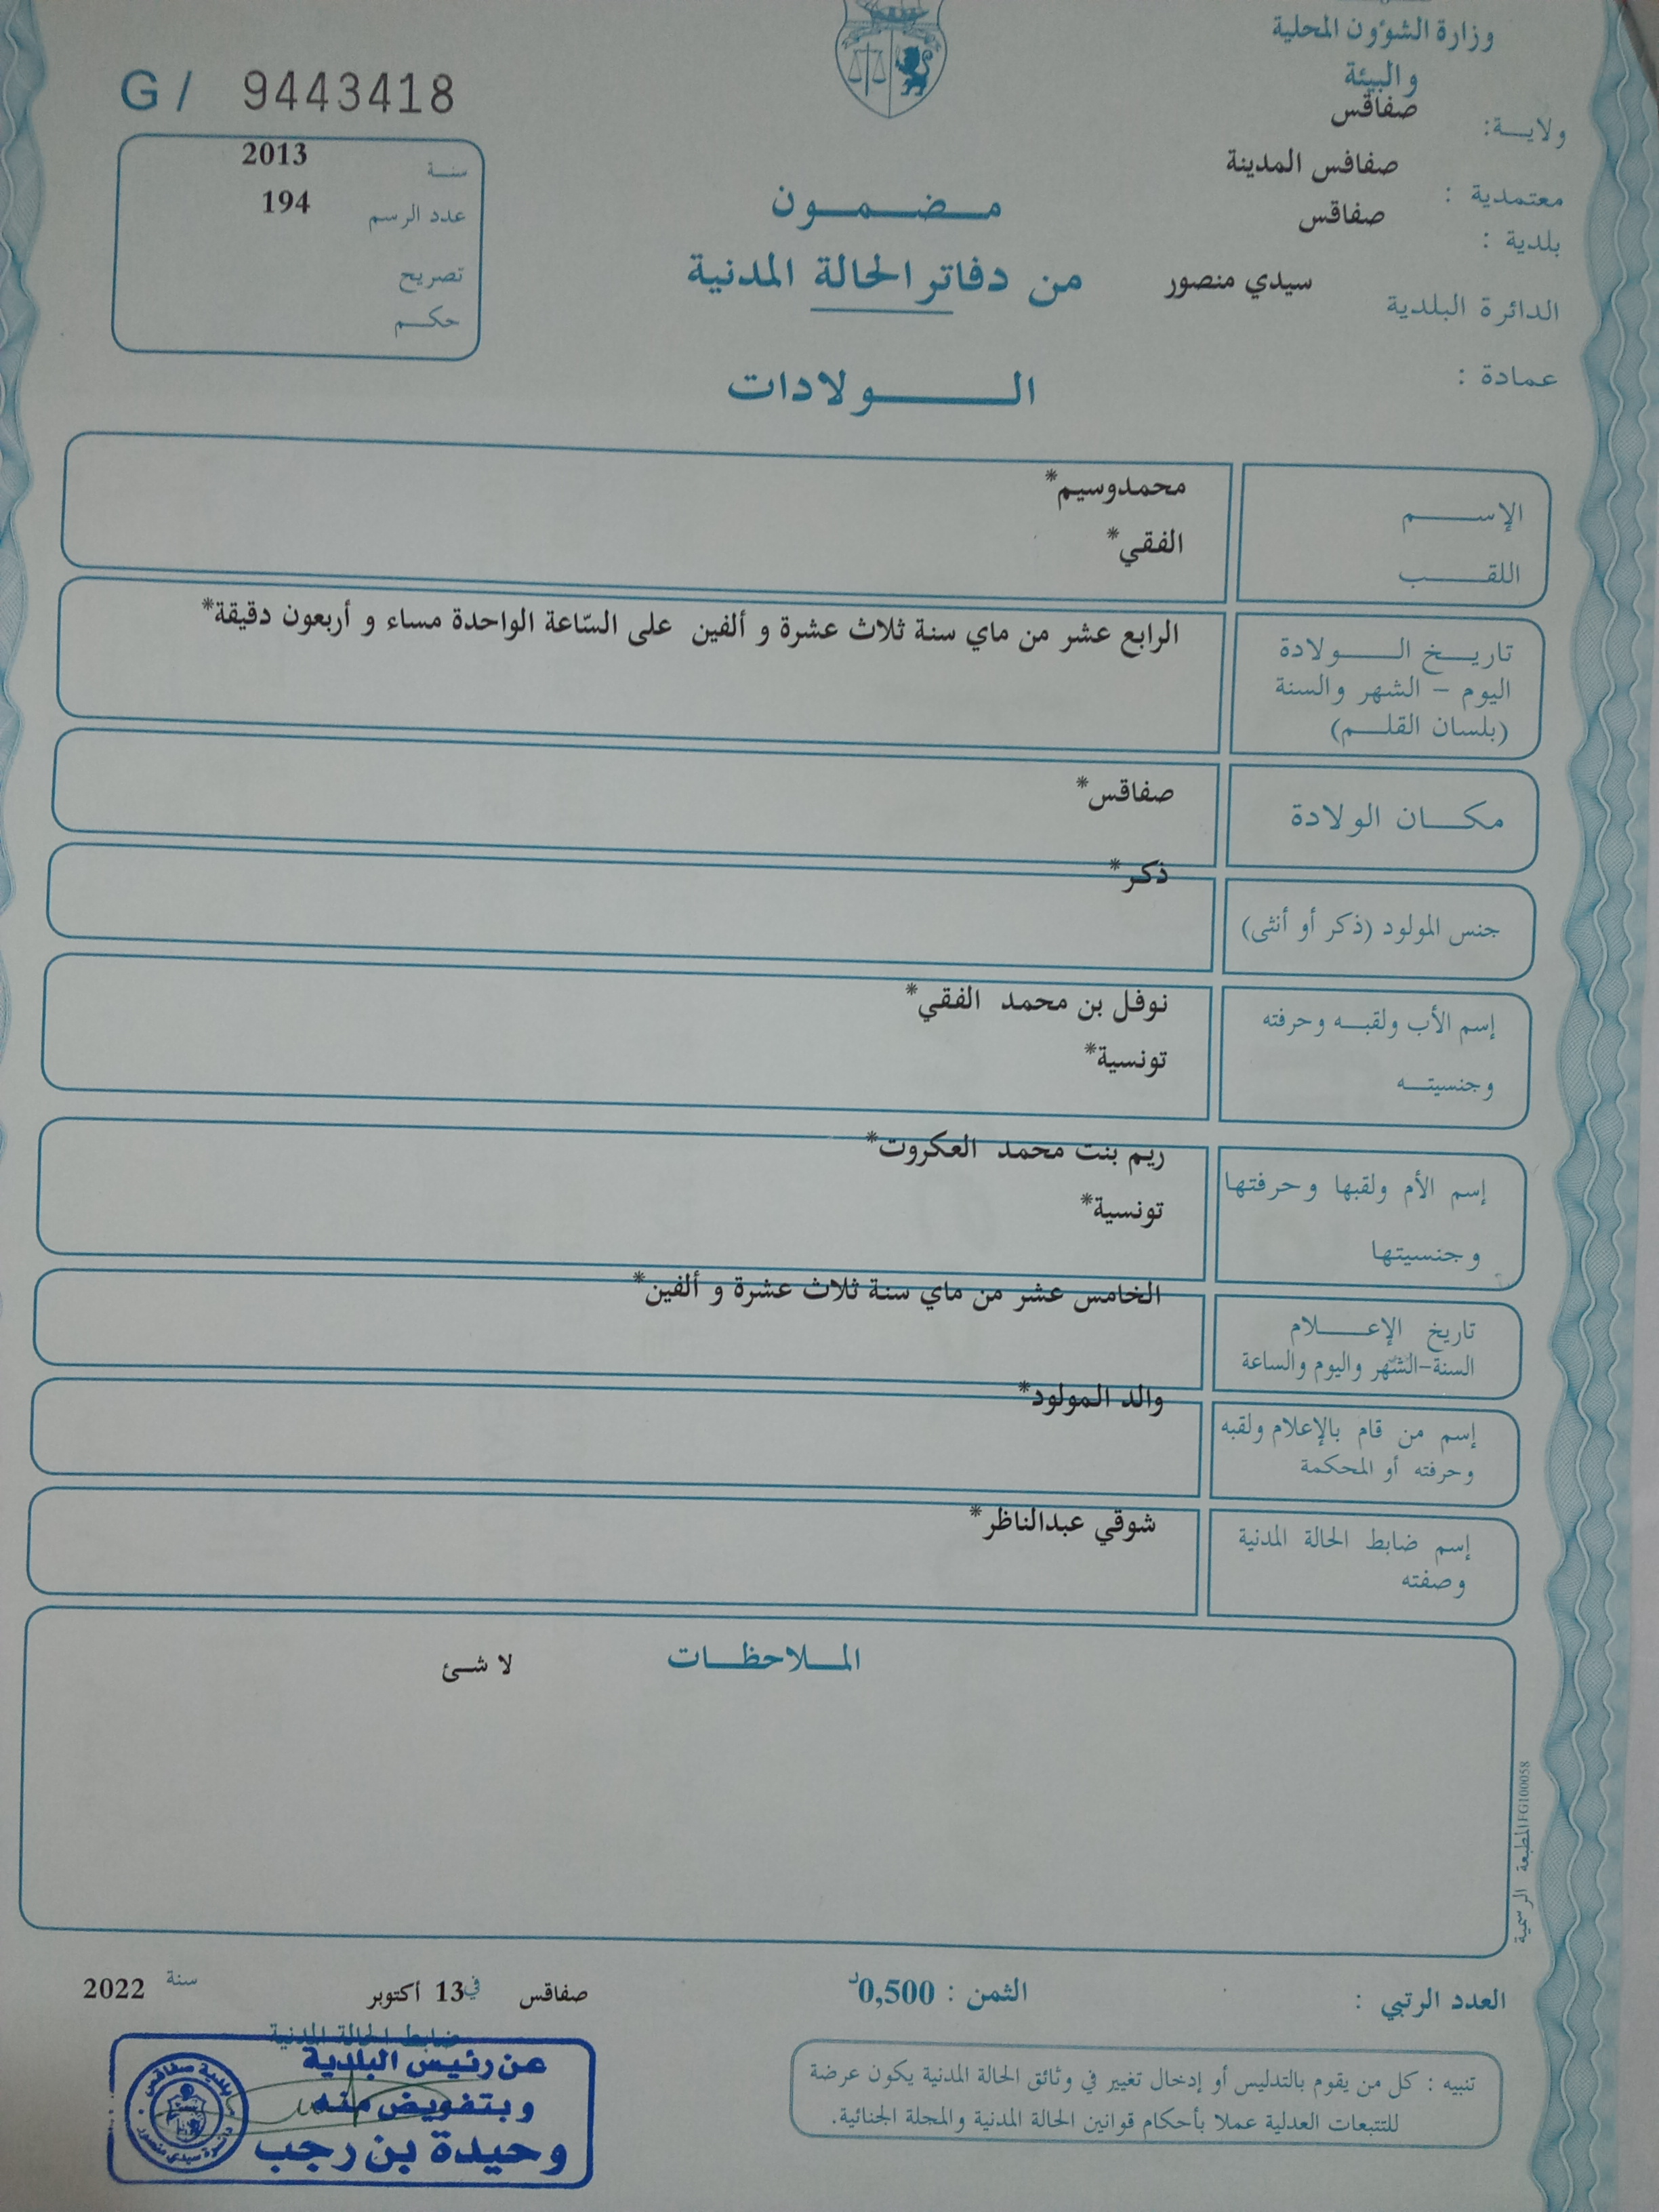 وزارة الشؤون المحلية
والبيئة
ولاية: صفاقس
معتمدية : صفاقس المدينة
بلدية : صفاقس
الدائرة البلدية سيدي منصور
عمادة :
G / 9443418
سنة 2013
عدد الرسم 194
تصريح
حكم
مضمون
من دفاتر الحالة المدنية
الولادات
الإسم محمدوسيم*
اللقب الفقي*
تاريخ الولادة الرابع عشر من ماي سنة ثلاث عشرة و ألفين على السّاعة الواحدة مساء و أربعون دقيقة*
اليوم - الشهر والسنة
(بلسان القلم)
مكان الولادة صفاقس*
جنس المولود (ذكر أو أنثى) ذكر*
إسم الأب ولقبه وحرفته نوفل بن محمد الفقي*
وجنسيته تونسية*
إسم الأم ولقبها وحرفتها ريم بنت محمد العكروت*
وجنسيتها تونسية*
تاريخ الإعلام الخامس عشر من ماي سنة ثلاث عشرة و ألفين*
السنة-الشهر واليوم والساعة
إسم من قام بالإعلام ولقبه والد المولود*
وحرفته أو المحكمة
إسم ضابط الحالة المدنية شوقي عبدالناظر*
وصفته
الملاحظات لا شئ
المطبعة الرسمية FG100058
العدد الرتبي : الثمن : 0,500د صفاقس في 13 أكتوبر سنة 2022
ضابط الحالة المدنية
عن رئيس البلدية
وبتفويض منه
وحيدة بن رجب
بلدية صفاقس
دائرة سيدي منصور
تنبيه : كل من يقوم بالتدليس أو إدخال تغيير في وثائق الحالة المدنية يكون عرضة
للتتبعات العدلية عملا بأحكام قوانين الحالة المدنية والمجلة الجنائية.